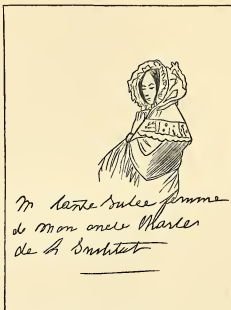 m tante femme
de mon oncle Charles
de l'Institut